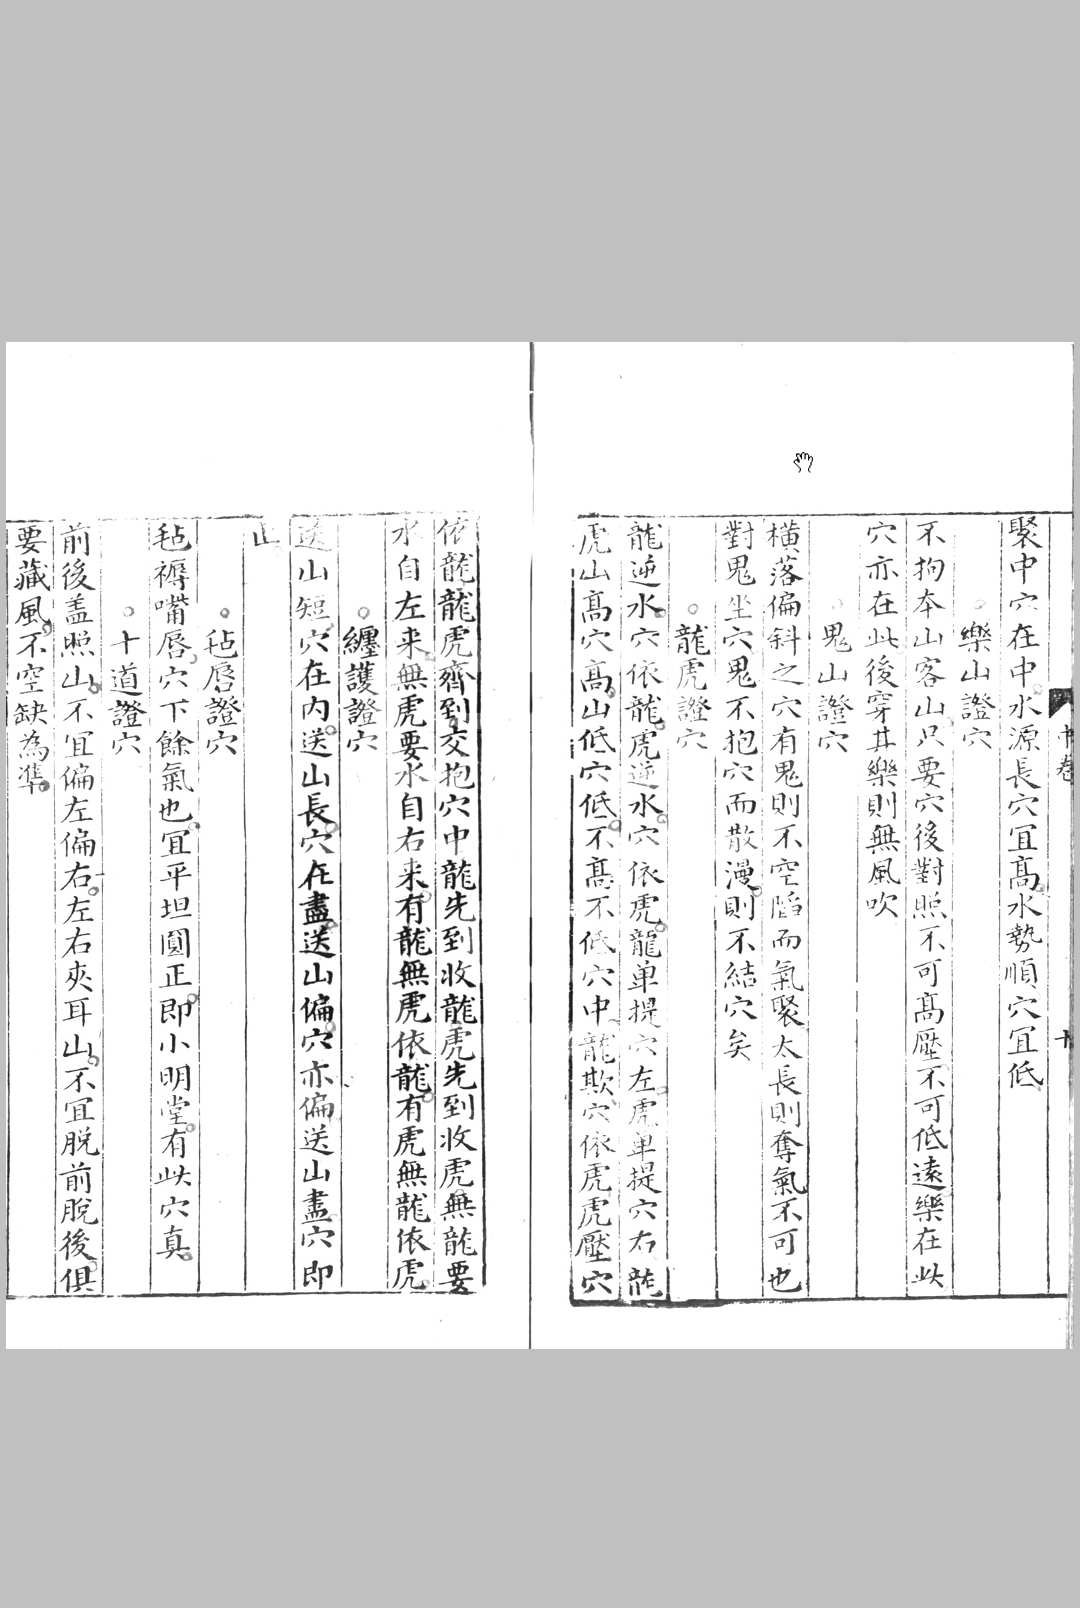 聚中穴在中水源長穴冝髙水勢順穴冝低
樂山證穴
不拘本山客山只要穴後對照不可髙壓不可低遠樂在此
穴亦在此後穿其樂則無風吹
鬼山證穴
橫落偏斜之穴有鬼則不空陷而氣聚太長則奪氣不可也
對鬼坐穴鬼不抱穴而散漫則不結穴矣
龍虎證穴
龍逆水穴依龍虎逆水穴依虎龍单提穴左虎单提穴右龍
虎山髙穴髙山低穴低不髙不低穴中龍欺穴依虎虎壓穴
依龍龍虎齊到交抱穴中龍先到收龍虎先到收虎無龍要
水自左来無虎要水自右来有龍無虎依龍有虎無龍依虎
纏護證穴
送山短穴在内送山長穴在盡送山偏穴亦偏送山盡穴即
止
毡唇證穴
毡褥嘴唇穴下餘氣也冝平坦圓正即小明堂有此穴真
十道證穴
前後盖照山不冝偏左偏右左右夾耳山不冝脱前脱後俱
要藏風不空缺為準